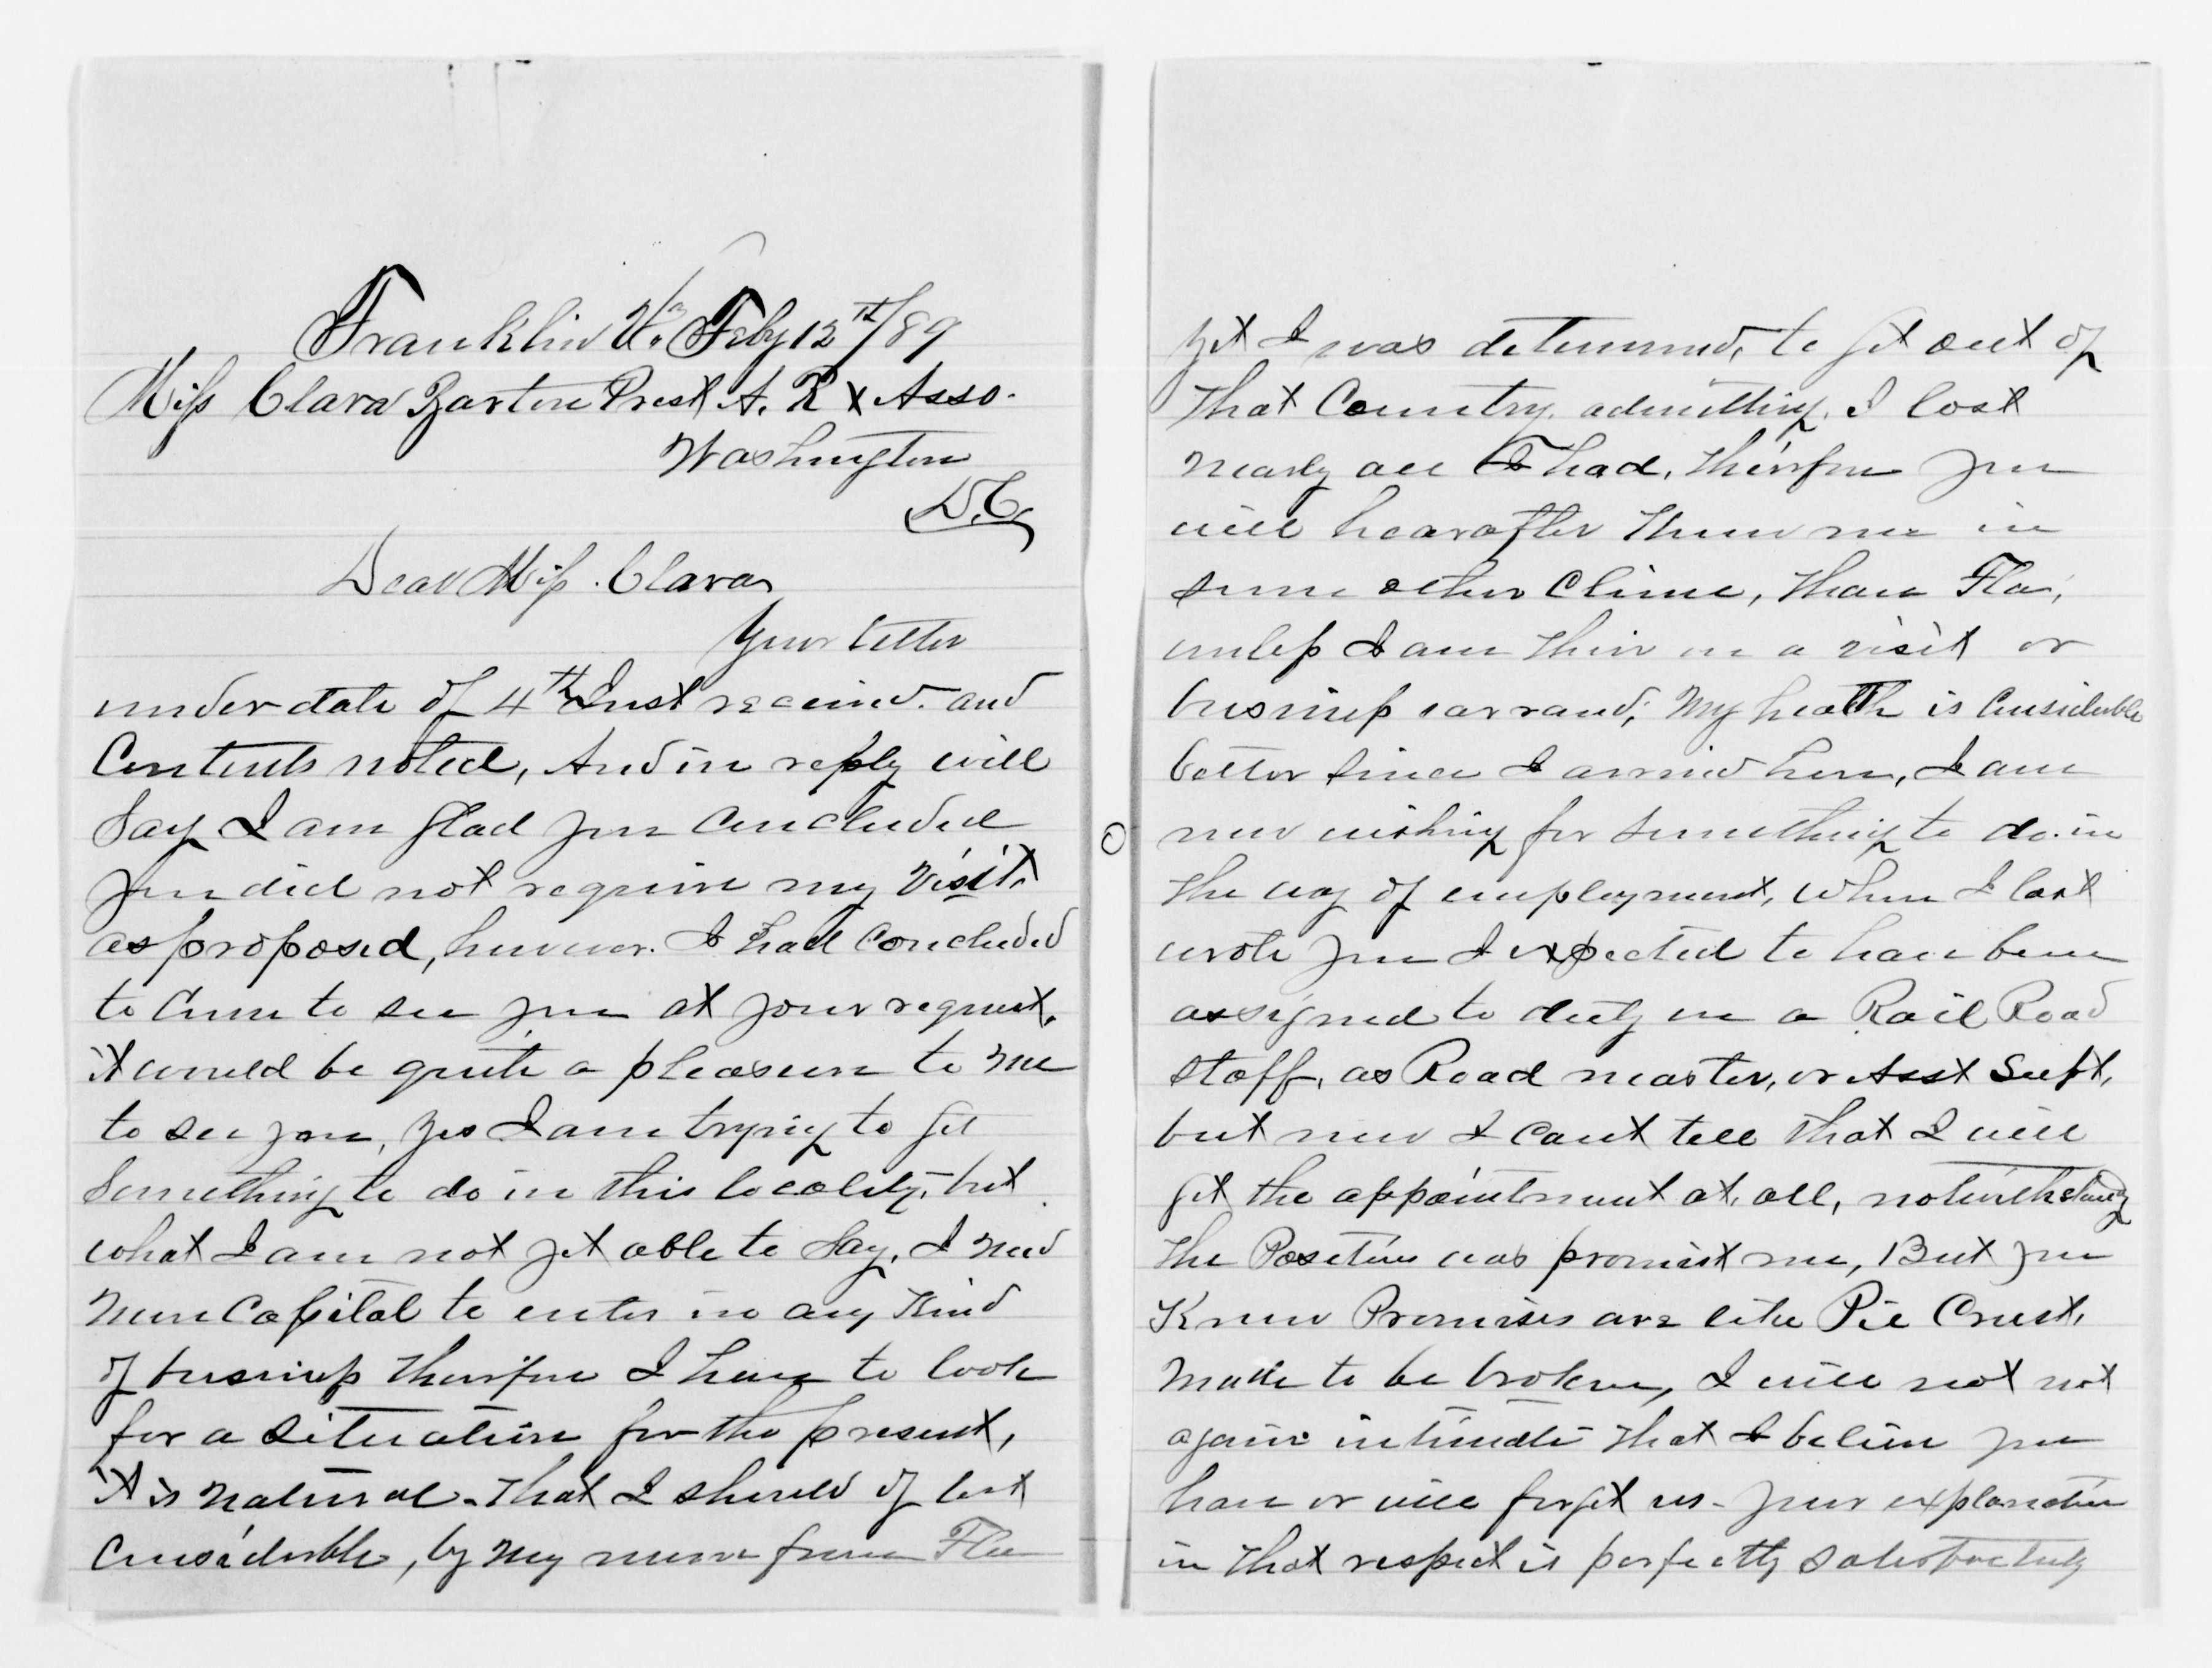 Franklin Va. Feby 12th/89
Miss Clara Barton Prest A. R X Asso.
Washington
D.C.
Dear Miss. Clara,
Your letter
under date of 4th Inst received. and
Contents noted, And in reply will
Say I am glad you Concluded
you did not require my Visit.
as proposed, however. I had Concluded
to Come to see you at your request,
it would be quite a pleasure to me
to see you, Yes I am trying to get
Something to do in this locality, but
what I am not yet able to Say, I need
more Capital to enter in any Kind
of business therefore I have to look
for a Situation for the present,
it is natural. that I should of lost
Considerble, by my move from Fla
Yet I was determined, to get out of
that Country, admitting, I lost
nearly all I had, therefore you
will hearafter Know me in
some other Clime, than Fla,
unless I am their on a visit or
business earrand; My health is Considerble
better since I arrived here, I am
now wishing for something to do. in
the way of employment, when I last
wrote you I expected to have been
assigned to duty on a Rail Road
staff, as Road master, or Asst Supt,
but now I cant tell that I will
get the appointment at, all, notwithstandg
the Position was promist me, But you
Know Promises are like Pie Crust,
Made to be broken, I will not not
again intimate that I believe you
have or will forget us - your explanation
in that respect is perfectly satisfactuly